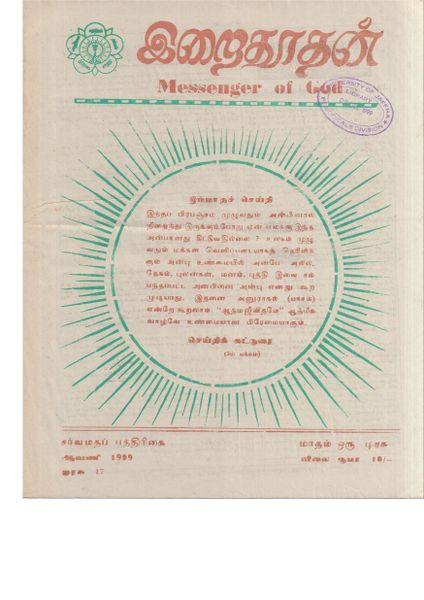 இறைதூதன்
Messenger of God
UNIVERSITY OF JAFFNA
LIBRARY
PERIODICALS DIVISION
இம்மாதச் செய்தி
இந்தப் பிரபஞ்சம் முழுவதும் அன்பினால்
நிறைந்து இருக்கும்போது ஏன் எமக்கு இந்த
அன்பானது கிட்டுவதில்லை ? உலகம் முழு
வதும் மக்கள் வெளிப்படையாகத் தெரிவிக்
கும் அன்பு உண்மையில் அன்பே அல்ல.
தேகம், புலன்கள், மனம், புத்தி இவை சம்
பந்தப்பட்ட அன்பினை அன்பு எனது கூற
முடியாது. இதனை அனுராகம் (மாகம்)
என்றே கூறலாம் "ஆத்மஜீவிதமே" ஆத்மிக
வாழ்வே உண்மையான பிரேமையாகும்.
செய்திக் கட்டுரை
(மே பக்கம்)
சர்வமதப் பத்திரிகை
மாதம் ஒரு முறை
ஆவணி 1999
விலை ரூபா 10/-
இதழ் 17